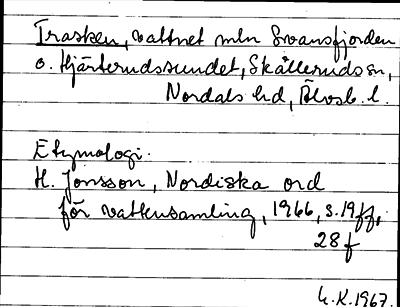 Trasken, vattnet mln Svansfjorden
o. Hjärterudssundet, Skållerudssn,
Nordals hd, Älvsb. l.
Etymologi.
H. Jonsson, Nordiska ord
för vattensamling, 1966, s. 19 ff,
28 f
G.K. 1967.